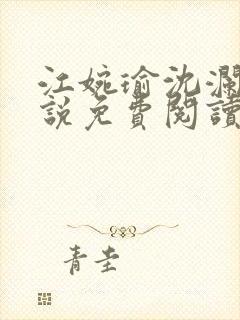 江婉瑜沈瀾
說免費閱讀
青圭